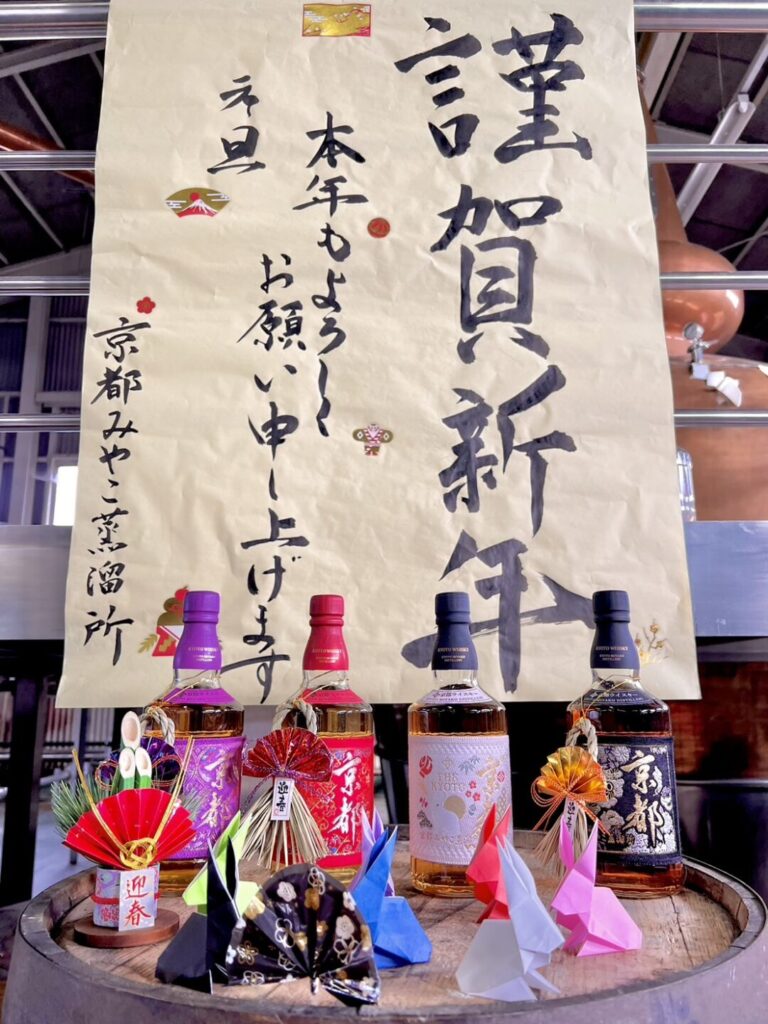 謹賀新年
本年もよろしく
お願い申し上げます
元旦
京都みやこ蒸溜所
KYOTO WHISKY
KYOTO WHISKY
KYOTO WHISKY
KYOTO WHISKY
京都
京都
THE
KYOTO
京都
京都
迎春
迎春
迎春